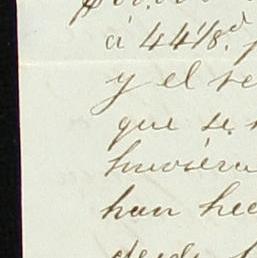 á 44 1/8.d
y el se
que se
huviera
han hec
desde